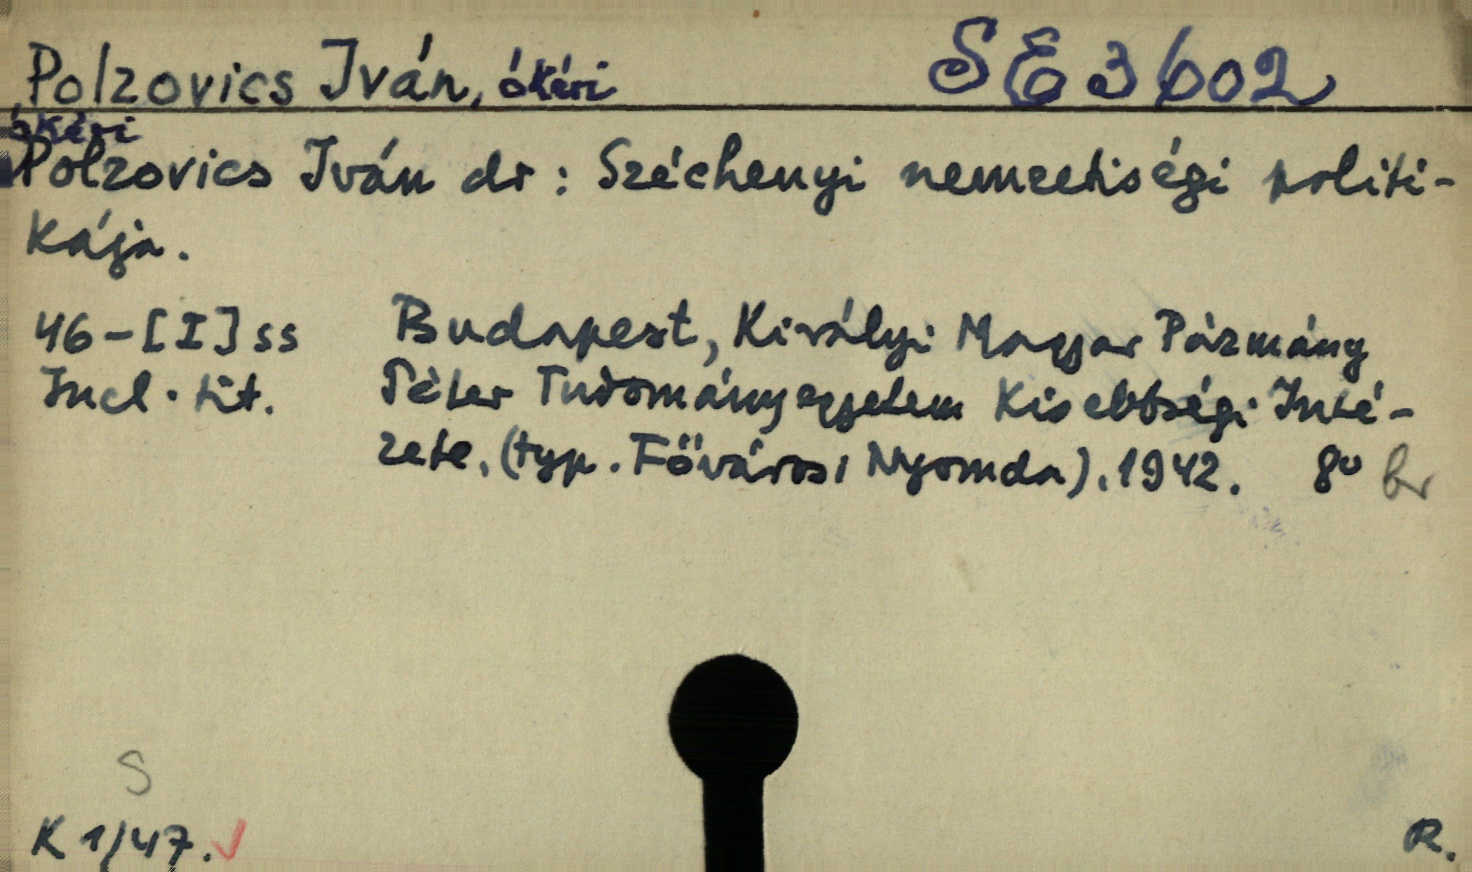 Polzovics Iván, ókéri
SE 3602
ókéri
Polzovics Iván dr : Széchenyi nemzetiségi politi-
kája.
46-[I] ss
Incl. tit.
Budapest, Királyi Magyar Pázmány
Péter Tudományegyetem Kisebbségi Inté-
zete, (typ. Fővárosi Nyomda). 1942. 8° br
S
K 1/47.
R.